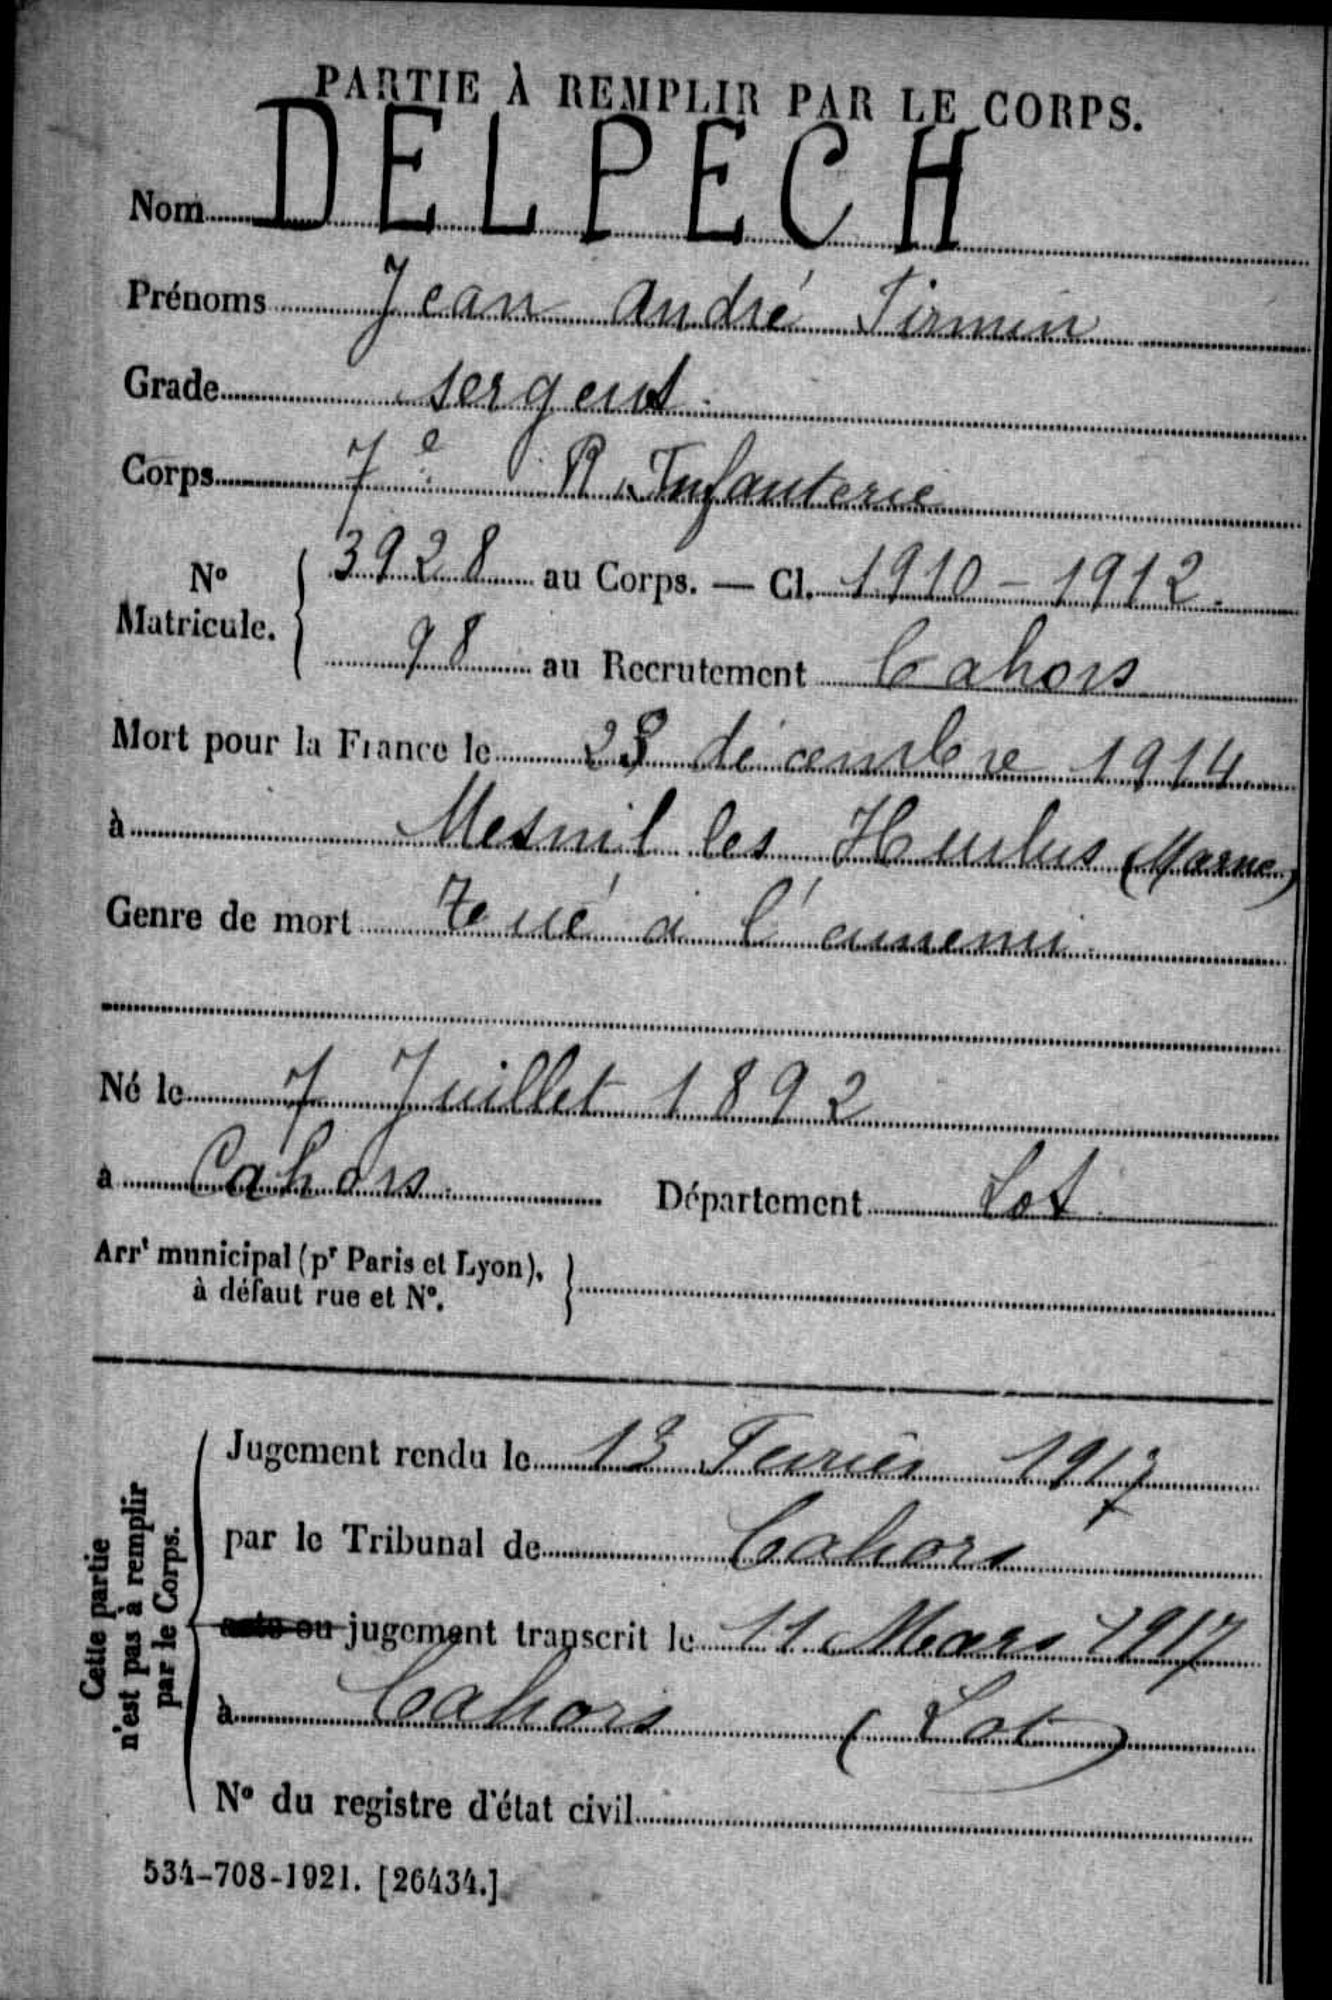 PARTIE À REMPLIR PAR LE CORPS.
Nom DELPECH
Prénoms Jean André Firmin
Grade sergent.
Corps 7e R. Infanterie
No Matricule. 3928 au Corps. — Cl. 1910 - 1912.
98 au Recrutement Cahors
Mort pour la France le décembre 1914
à Mesnil les Hurlus (Marne)
Genre de mort Tué à l'ennemi
Né le 7 Juillet 1892
à Cahors. Département Lot
Arrt municipal (pr Paris et Lyon),
à défaut rue et No.
Cette partie
n'est pas à remplir
par le Corps.
Jugement rendu le 13 Fevrier 1917
par le Tribunal de Cahors
acte ou jugement transcrit le 11 Mars 1917
à Cahors (Lot)
No du registre d'état civil
534-708-1921. [26434.]